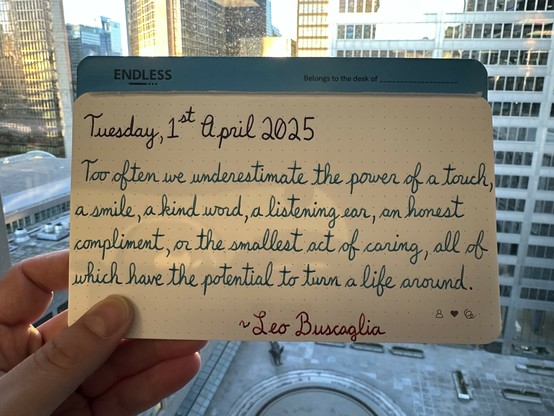 ENDLESS
Belongs to the desk of
Tuesday, 1st April 2025
Too often we underestimate the power of a touch,
a smile, a kind word, a listening ear, an honest
compliment, or the smallest act of caring, all of
which have the potential to turn a life around.
~Leo Buscaglia